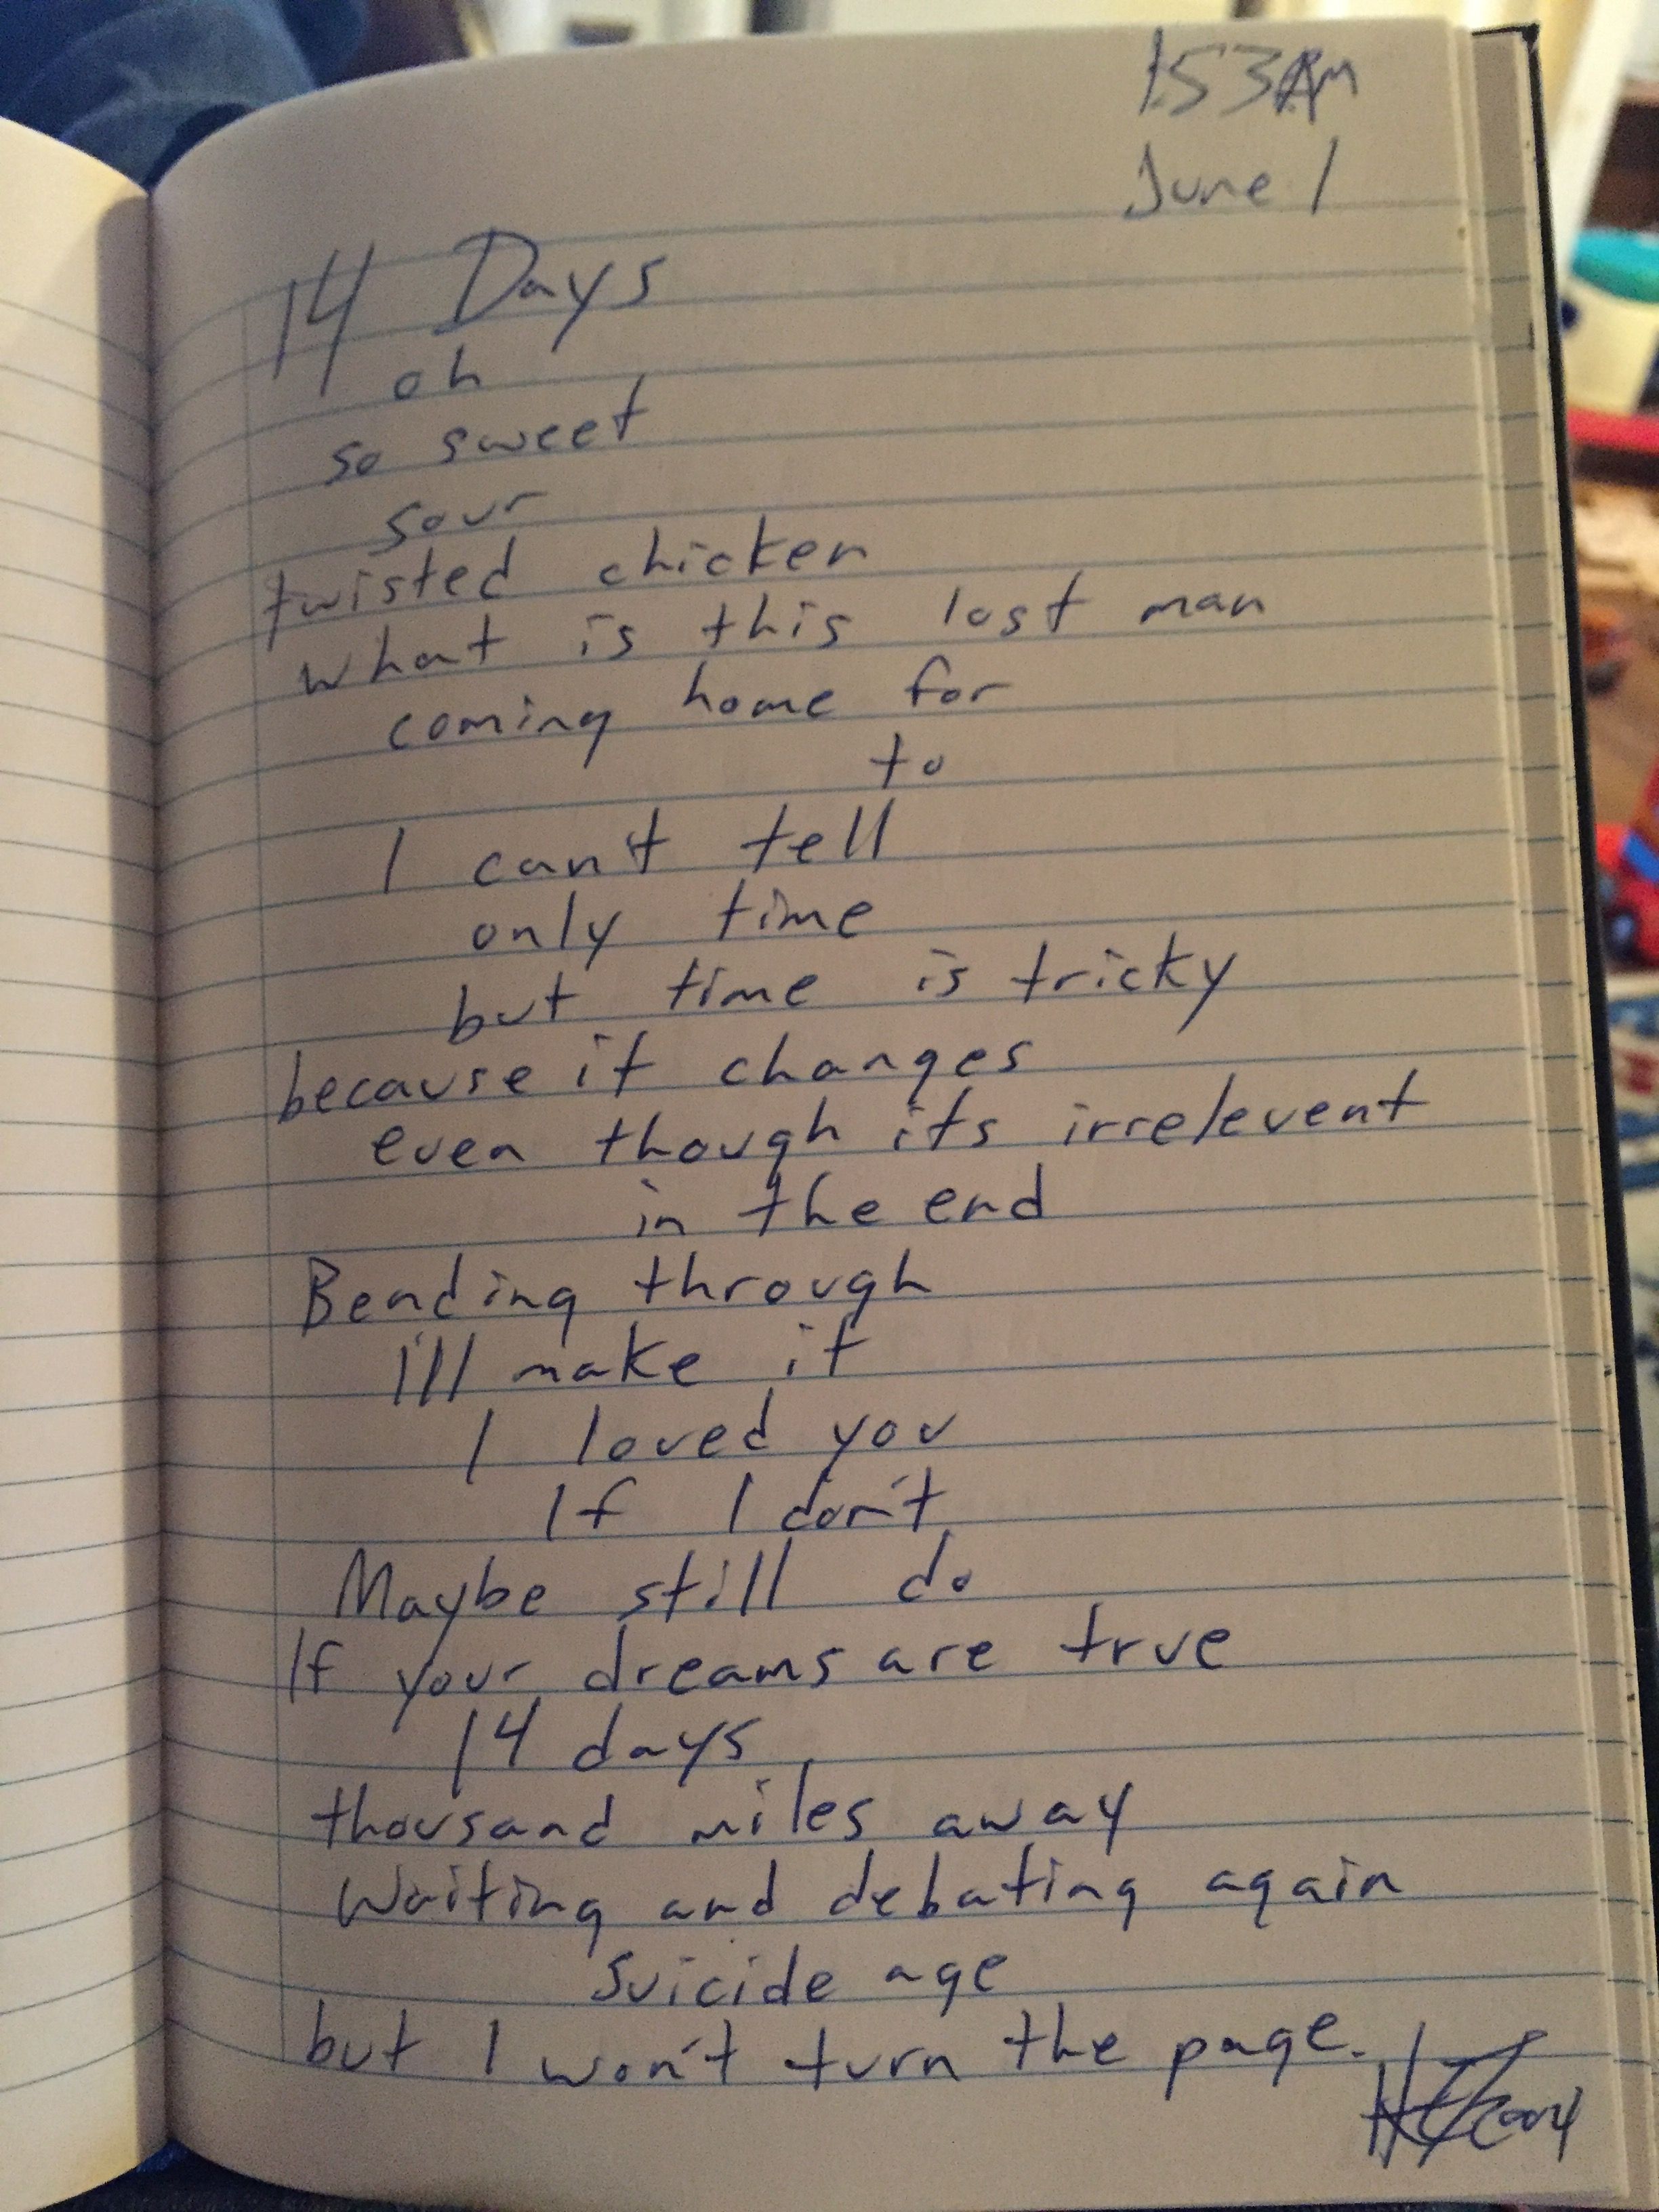 1:53AM
June 1
14 Days
oh
so sweet
sour
twisted chicken
what is this lost man
coming home for
to
I can't tell
only time
but time is tricky
because it changes
even though its irrelevent
in the end
Bending through
i'll make it
I loved you
If I don't
Maybe still do
If your dreams are true
14 days
thousand miles away
Waiting and debating again
Suicide age
but I won't turn the page.
2004